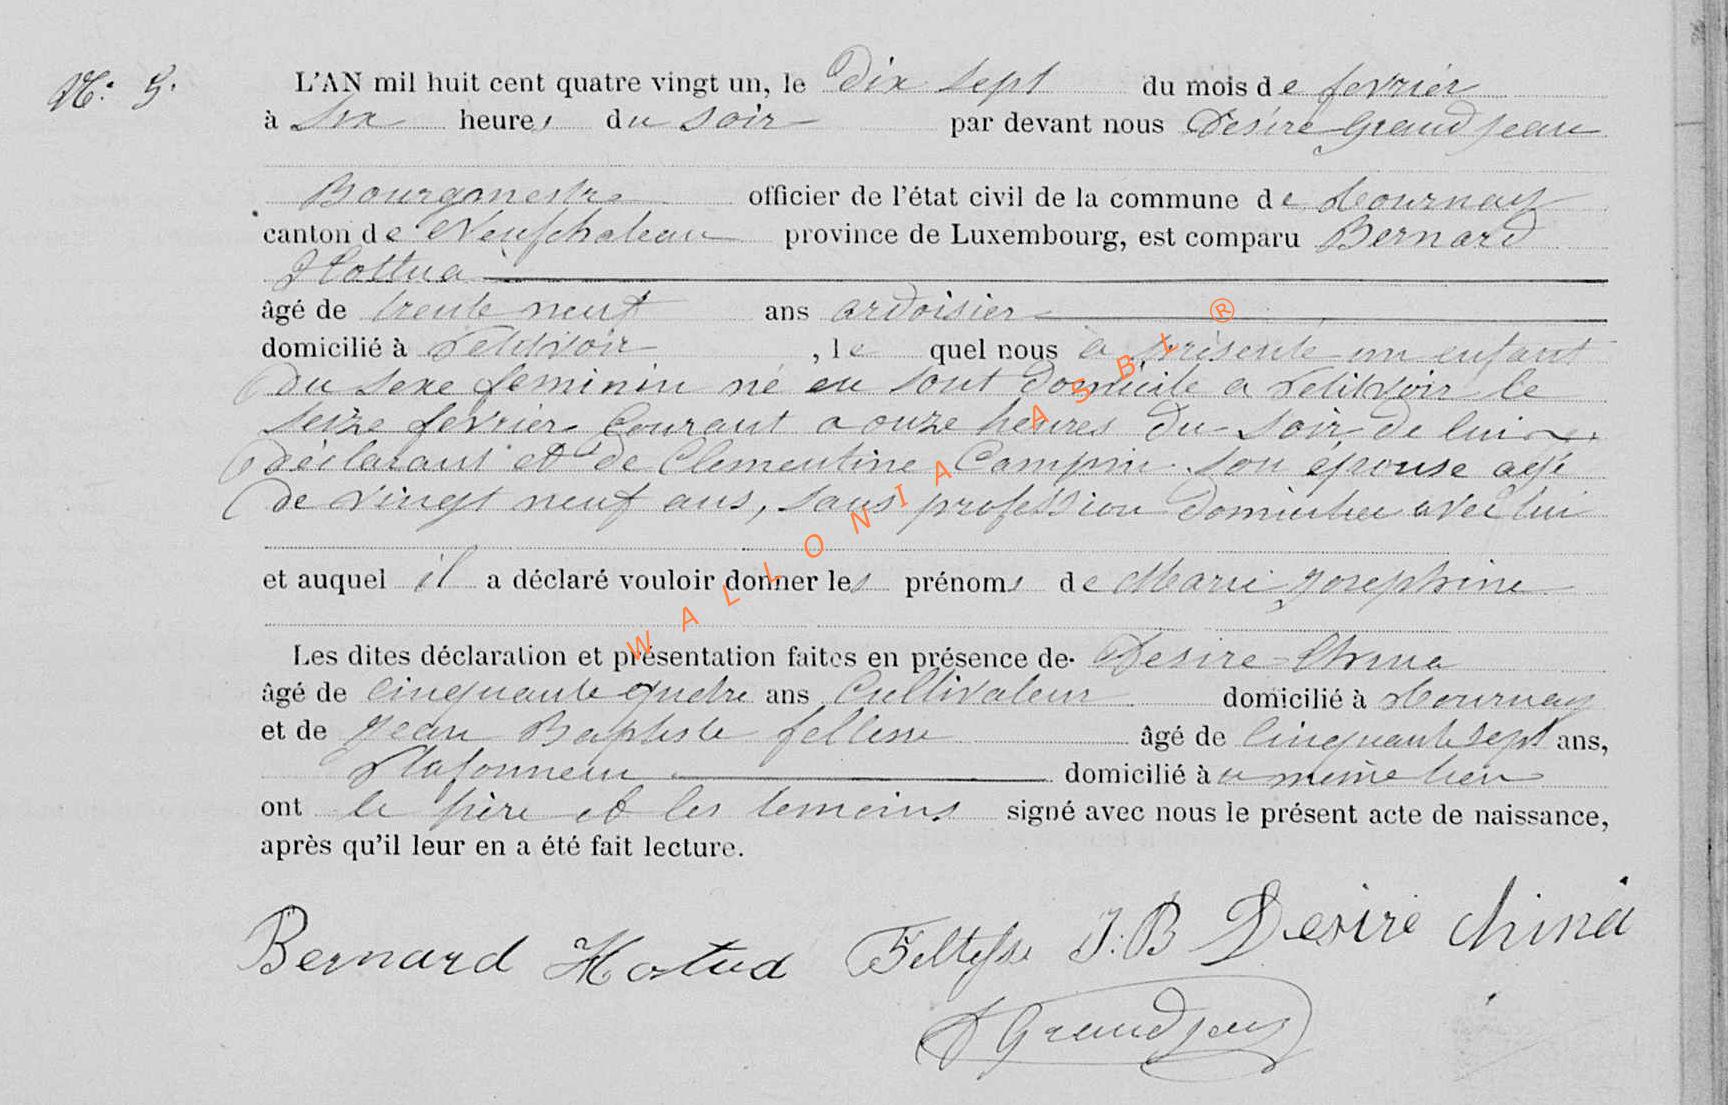 N.° 5.
L'AN mil huit cent quatre vingt un, le dix sept du mois de fevrier
à Six heures du soir par devant nous Désiré Grandjean
Bourgmestre officier de l'état civil de la commune de Tournay
canton de Neufchateau province de Luxembourg, est comparu Bernard
Hostua
âgé de trente neuf ans ardoisier
domicilié à , le quel nous a présenté un enfant
du sexe feminin né en sont domicile a le
seize fevrier Courant a onze heures du soir de lui
déclarant et de Clementine son épouse agé
de vingt neuf ans, sans profession domiciliee avec lui
et auquel il a déclaré vouloir donner les prénoms de Marie Josephine
Les dites déclaration et présentation faites en présence de Desire China
âgé de Cinquante quatre ans Cultivateur domicilié à Tournay
et de Jean Baptiste âgé de Cinquante sept ans,
Plafonneur domicilié à u même lieu
ont le père et les temoins signé avec nous le présent acte de naissance,
après qu'il leur en a été fait lecture.
Bernard Hostua Feltesse J.B Desiré China
D Grandjean
WALLONIA ASBL ®